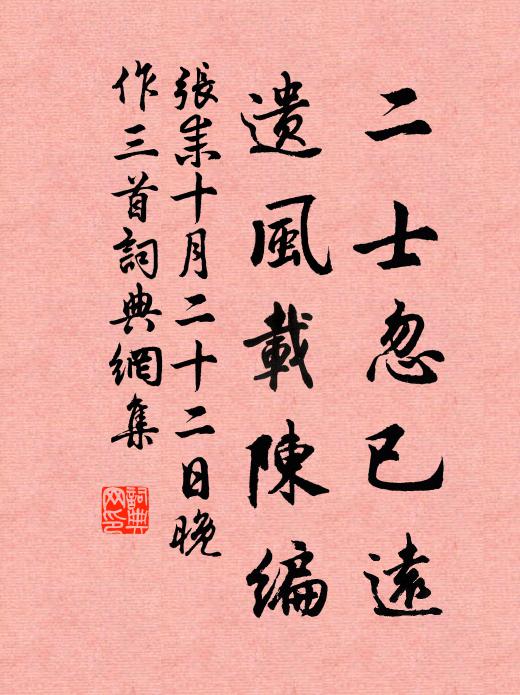 二士忽已遠
遺風載陳編
張耒十月二十二日晚
作三首詞典網集
詞典网印